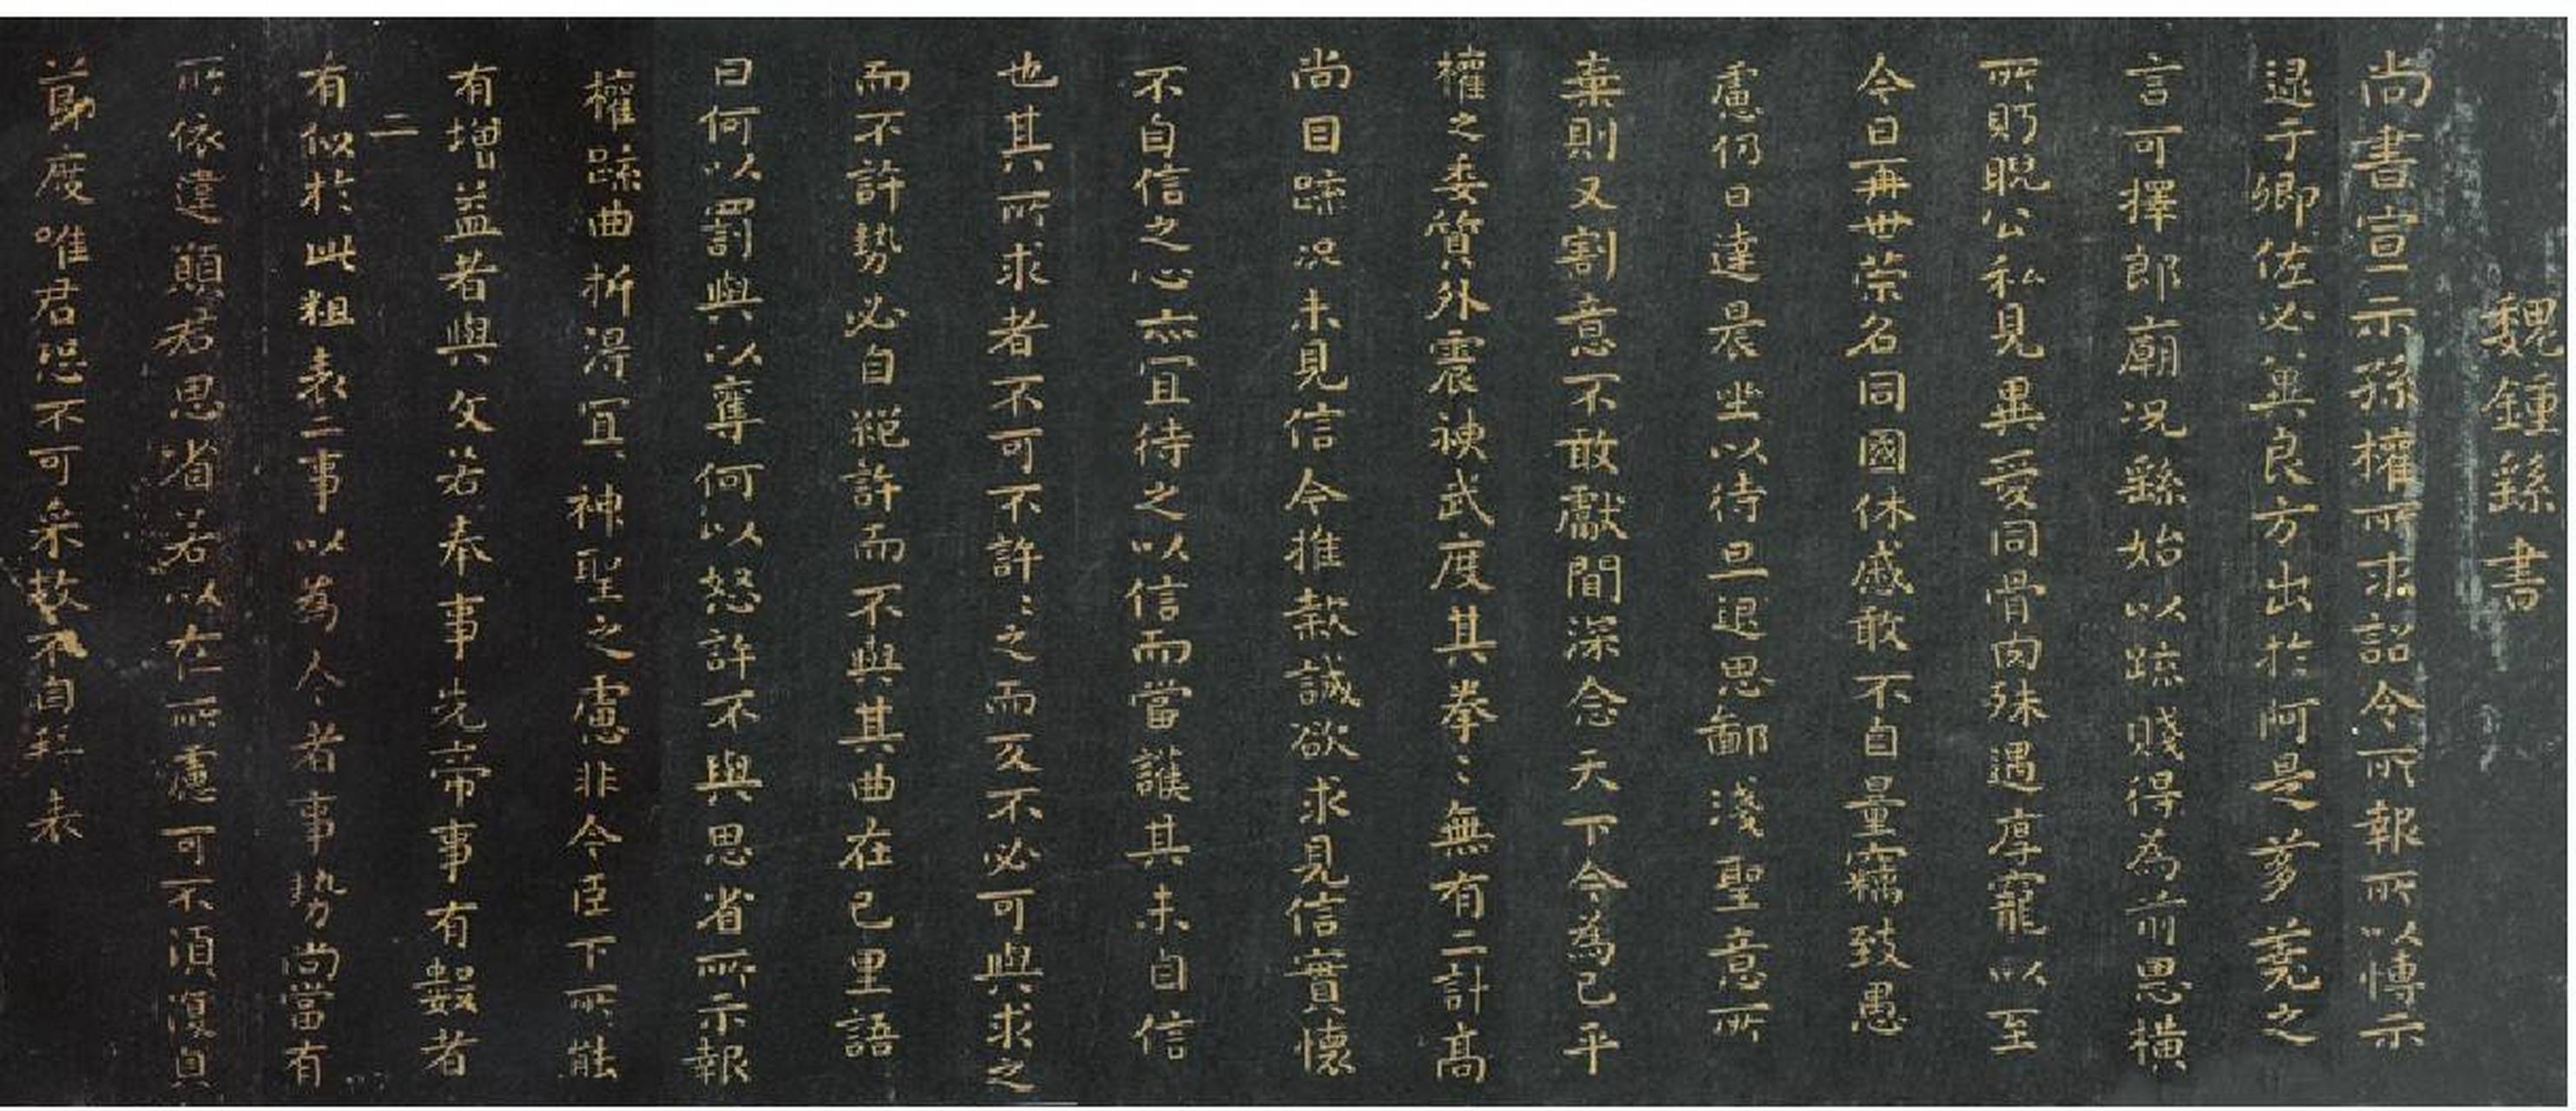 魏鍾繇書
尚書宣示孫權所求詔令所報所以博示
逯于卿佐必冀良方出於阿是芻蕘之
言可擇郎廟況繇始以疏賤得為前恩橫
所眄睨公私見異愛同骨肉殊遇厚寵以至
今日再世榮名同國休慼敢不自量竊致愚
慮仍日達晨坐以待旦退思鄙淺聖意所
棄則又割意不敢獻聞深念天下今為已平
權之委質外震神武度其拳〻無有二計高
尚自疏況未見信今推款誠欲求見信實懷
不自信之心亦宜待之以信而當護其未自信
也其所求者不可不許〻之而反不必可與求之
而不許勢必自絕許而不與其曲在己里語
曰何以罰與以奪何以怒許不與思省所示報
權疏曲折得宜神聖之慮非今臣下所能
有增益者與文若奉事先帝事有數者
有似於此粗表二事以為今者事勢尚當有
二
所依違願君思省若以在所慮可不須復自
節度唯君恐不可采故不自拜表